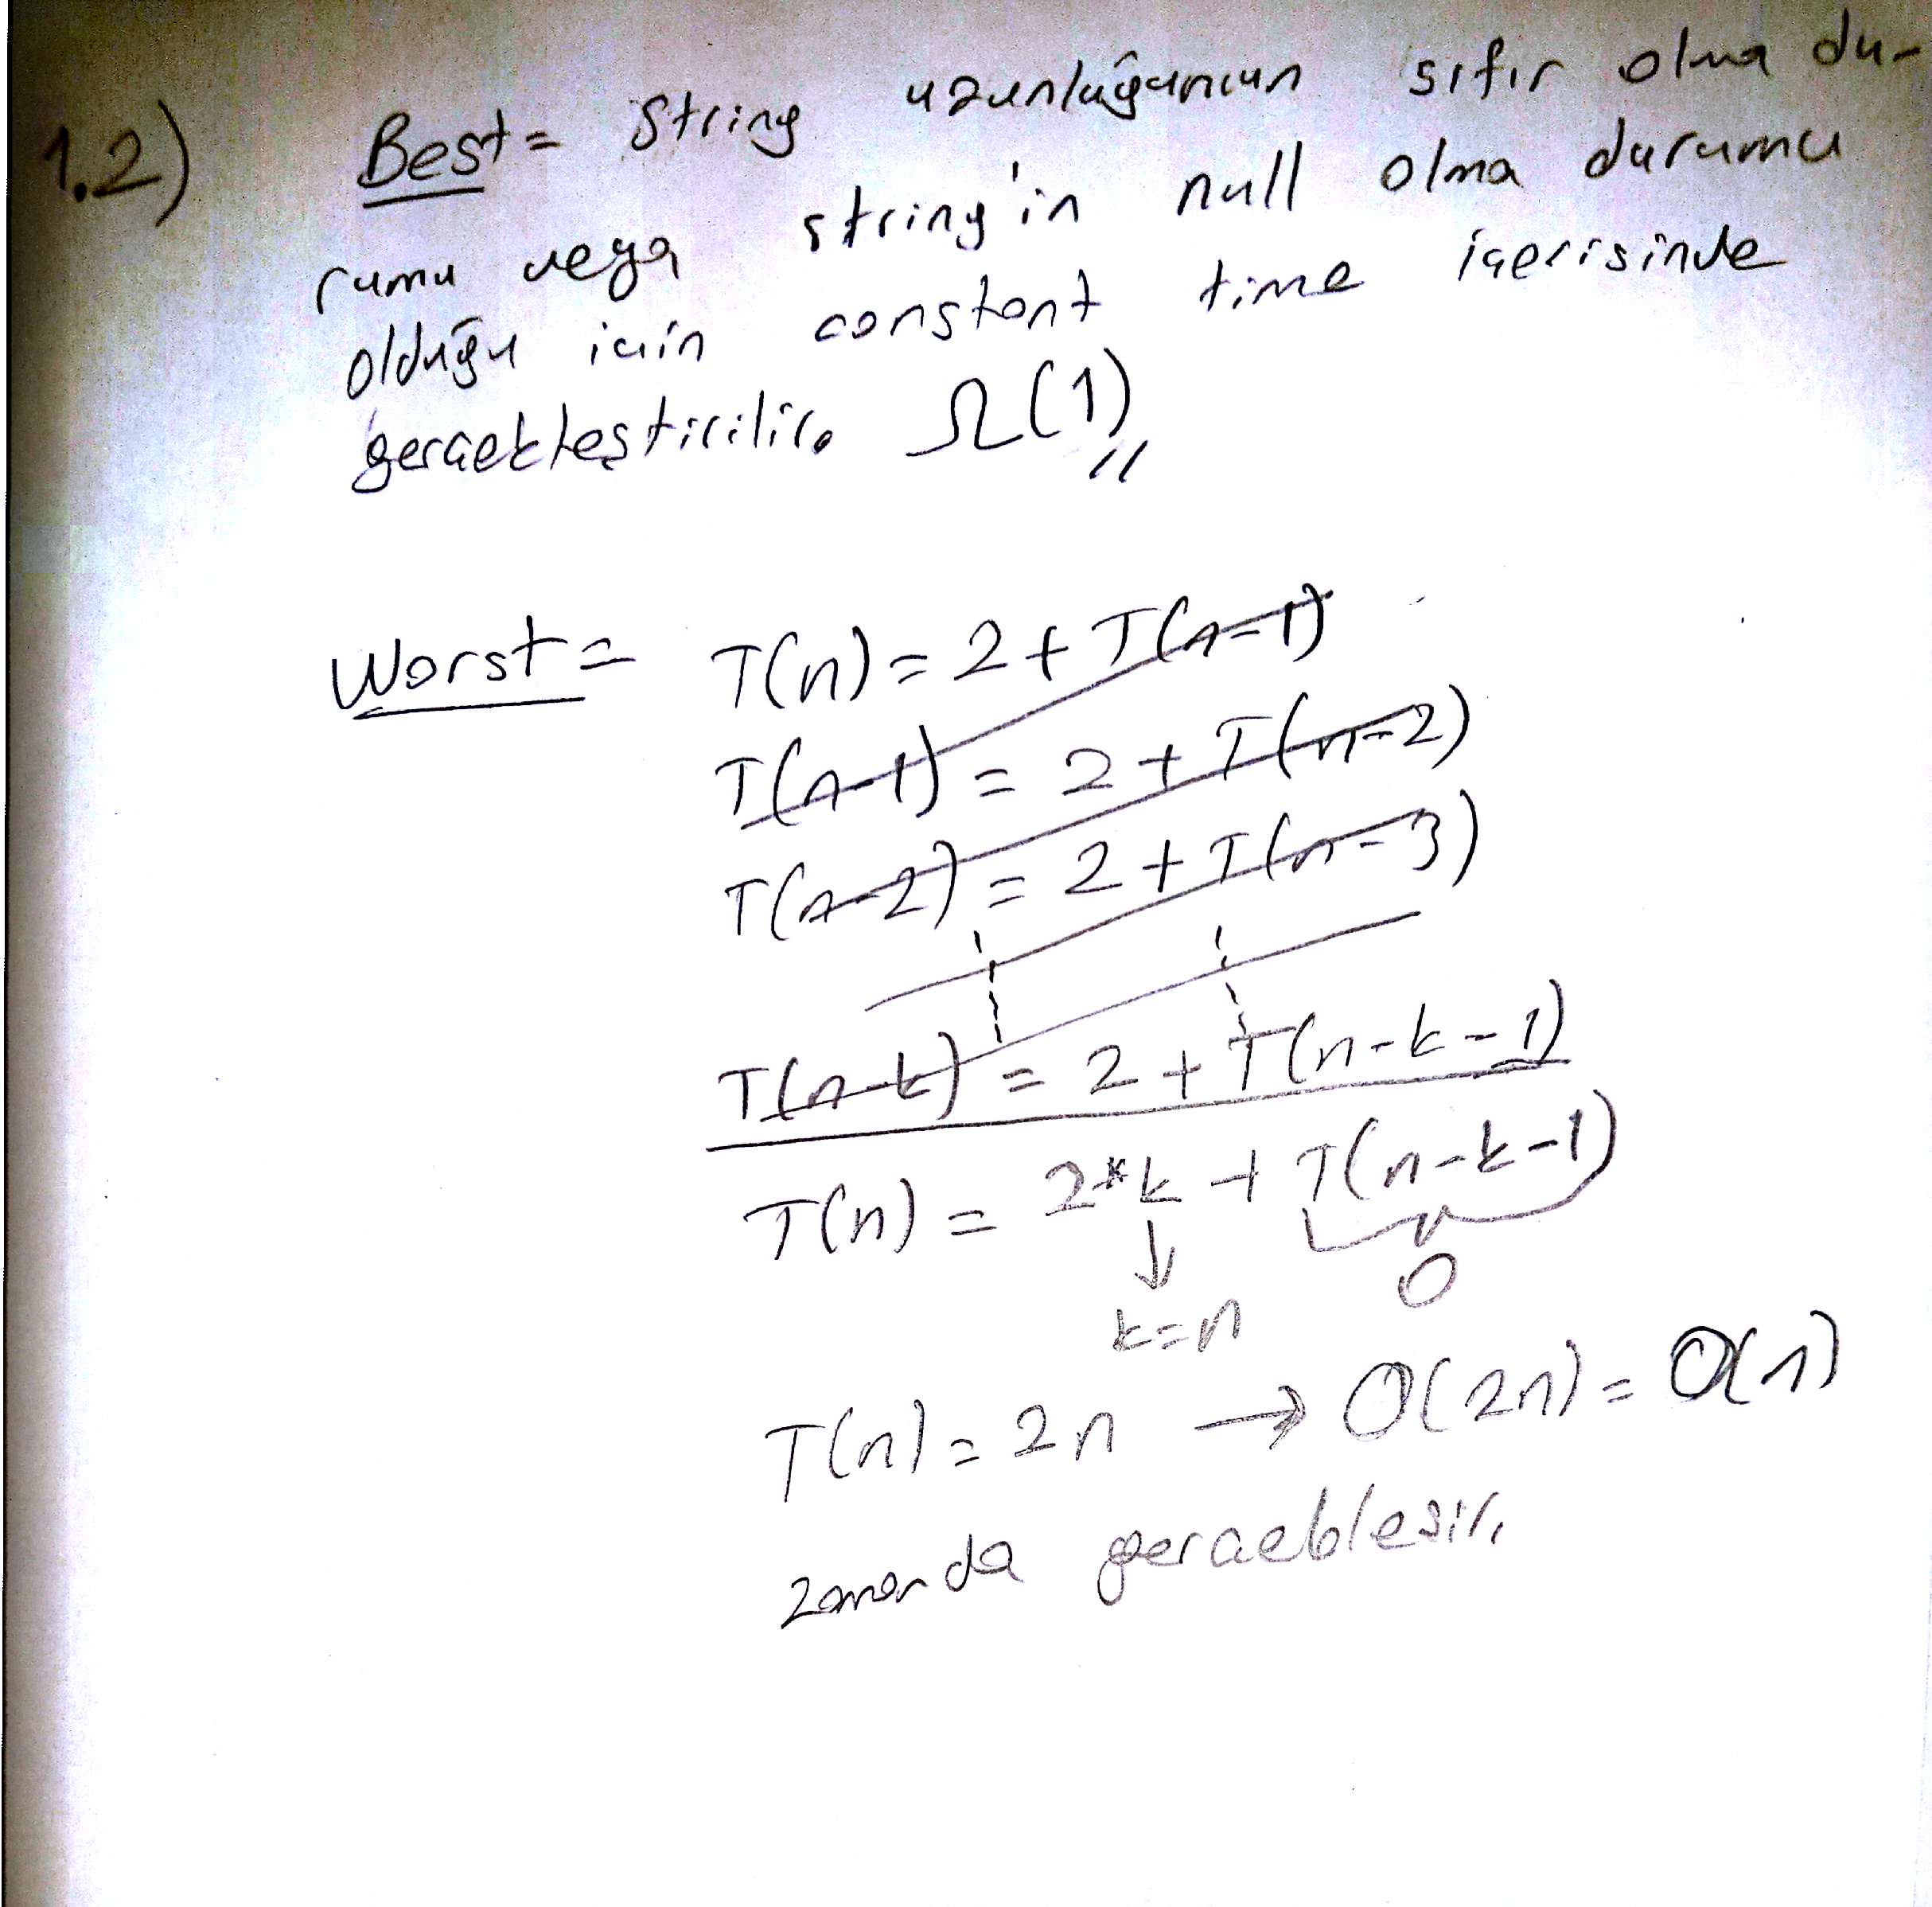 1.2) Best = String uzunluğunun sıfır olma du-
rumu veya string'in null olma durumu
olduğu için constant time içerisinde
gerçekleştirilir. Ω(1)
Worst = T(n) = 2 + T(n-1)
T(n-1) = 2 + T(n-2)
T(n-2) = 2 + T(n-3)
T(n-k) = 2 + T(n-k-1)
T(n) = 2*k + T(n-k-1)
k=n 0
T(n) = 2n → O(2n) = O(n)
zamanda gerçekleşir.